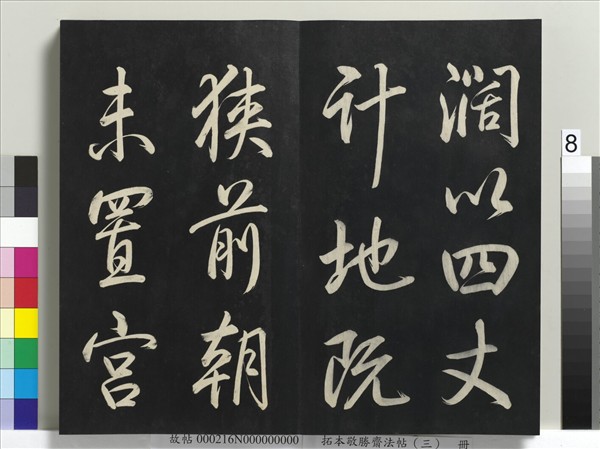 濶以四丈
計地既
狭前朝
未置宫
8
故帖 000216N000000000 拓本敬勝齋法帖（三） 冊